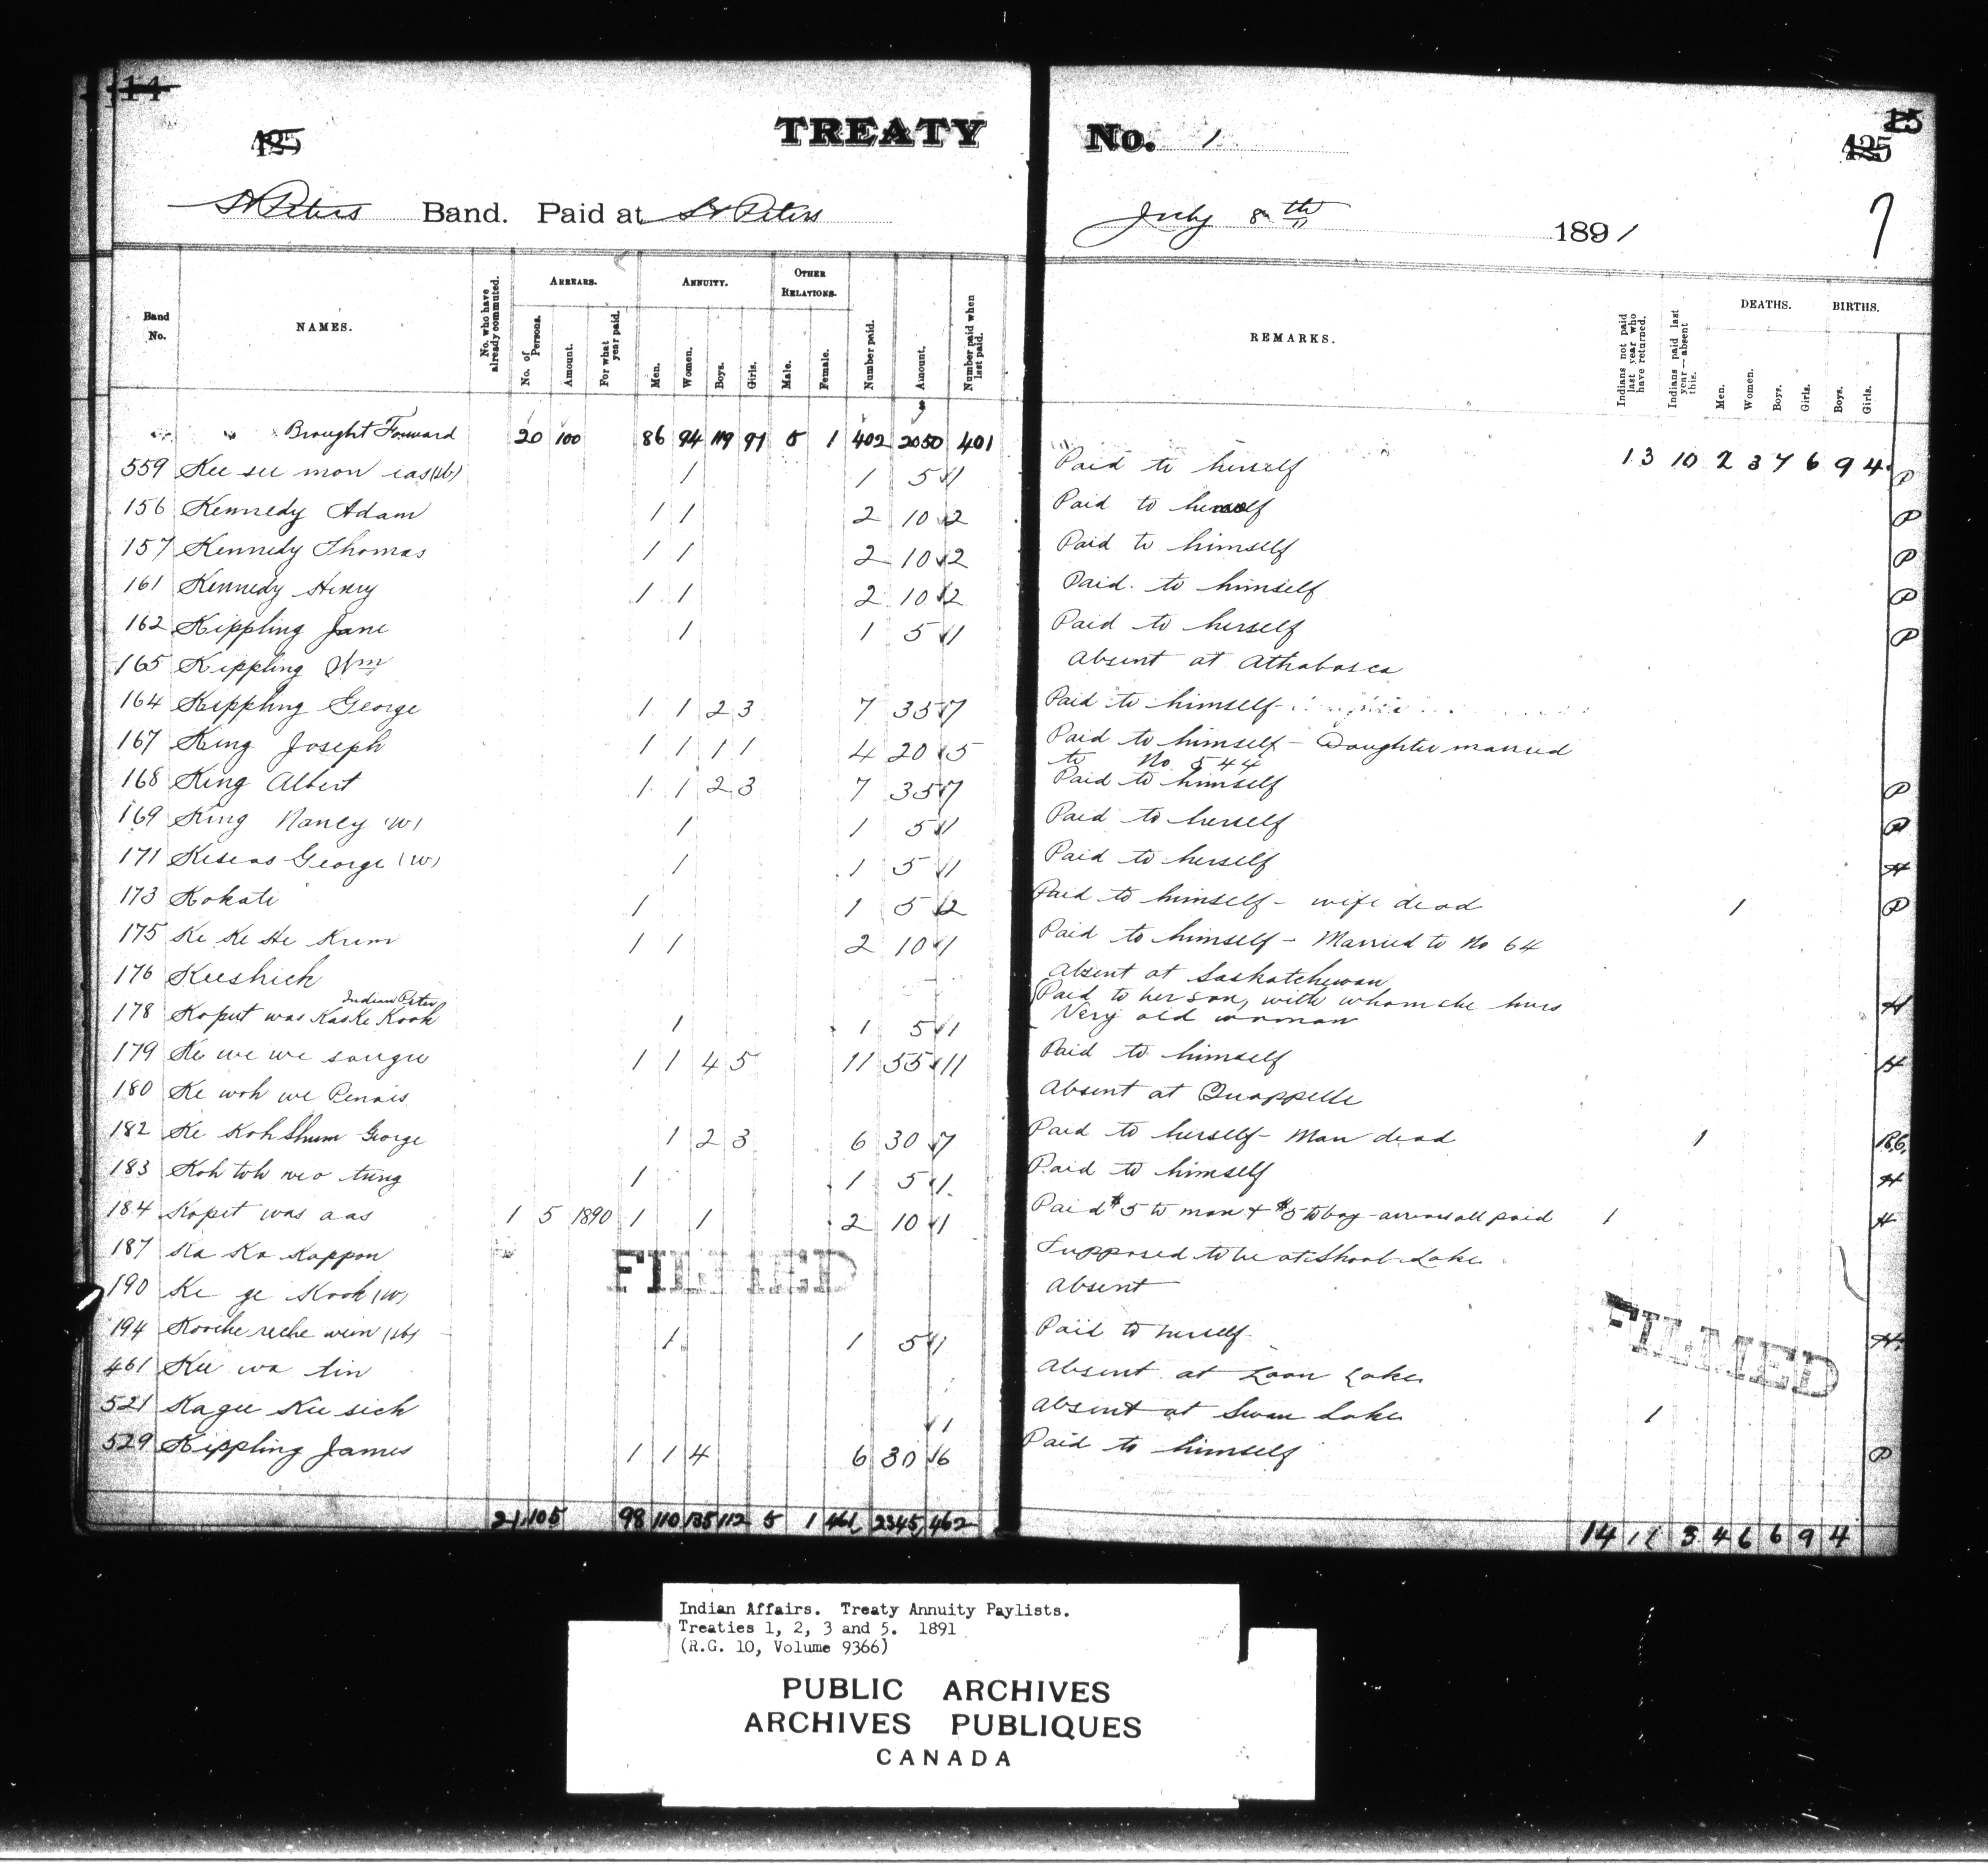 14
125
TREATY No. 1
15
125
St Peters Band. Paid at St Peters July 8th 1891
7
Band No.
NAMES.
No. who have already commuted.
ARREARS.
No. of Persons.
Amount.
For what year paid.
ANNUITY.
Men.
Women.
Boys.
Girls.
OTHER RELATIONS.
Male.
Female.
Number paid.
Amount.
Number paid when last paid.
REMARKS.
Indians not paid last year who have returned.
Indians paid last year—absent this.
DEATHS.
Men.
Women.
Boys.
Girls.
BIRTHS.
Boys.
Girls.
Brought Forward 20 100 86 94 119 97 5 1 402 2050 401 13 10 2 3 7 6 9 4
559 Kee see mon eas (W) 1 1 5 1 Paid to herself P
156 Kennedy Adam 1 1 2 10 2 Paid to himself P
157 Kennedy Thomas 1 1 2 10 2 Paid to himself P
161 Kennedy Henry 1 1 2 10 2 Paid to himself P
162 Kippling Jane 1 1 5 1 Paid to herself P
165 Kippling Wm Absent at Athabasca
164 Kippling George 1 1 2 3 7 35 7 Paid to himself
167 King Joseph 1 1 1 1 4 20 5 Paid to himself - Daughter married
to No 544
168 King Albert 1 1 2 3 7 35 7 Paid to himself P
169 King Nancy (W) 1 1 5 1 Paid to herself P
171 Keseas George (W) 1 1 5 1 Paid to herself H
173 Kokati 1 1 5 2 Paid to himself - wife dead 1 P
175 Ke Ke He Krum 1 1 2 10 1 Paid to himself - Married to No 64
176 Keeshick Absent at Saskatchewan
Indian Peter
178 Koput was Kaske Kook 1 1 5 1 Paid to her son, with whom she lives H
Very old woman
179 Ke we we saugee 1 1 4 5 11 55 11 Paid to himself H
180 Ke woh we Penais Absent at Quappelle
182 Ke Koh Shum George 1 2 3 6 30 7 Paid to herself - Man dead 1 R.C.
183 Koh toh neo tung 1 1 5 1 Paid to himself H
184 Kopet was aas 1 5 1890 1 1 2 10 1 Paid $5 to man + $5 to boy - arrears all paid 1 H
187 Ka Ka Kappon Supposed to be at Shoal Lake
190 Ke ge Kook (W) Absent
194 Kooche reche wein (W) 1 1 5 1 Paid to herself H
461 Kee wa tin Absent at Loon Lake
521 Kagee Kee sick 1 Absent at Swan Lake 1
529 Kippling James 1 1 4 6 30 6 Paid to himself P
21 105 98 110 135 112 5 1 461 2345 462 14 11 3 4 6 6 9 4
FILMED
FILMED
Indian Affairs. Treaty Annuity Paylists.
Treaties 1, 2, 3 and 5. 1891
(R.G. 10, Volume 9366)
PUBLIC ARCHIVES
ARCHIVES PUBLIQUES
CANADA